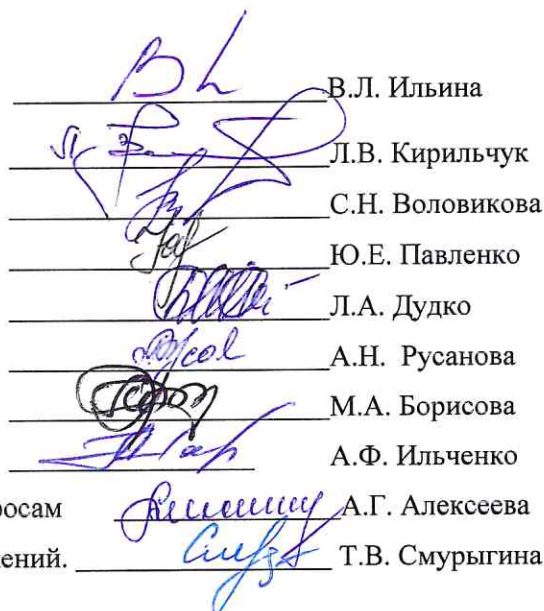 В.Л. Ильина
Л.В. Кирильчук
С.Н. Воловикова
Ю.Е. Павленко
Л.А. Дудко
А.Н. Русанова
М.А. Борисова
А.Ф. Ильченко
росам А.Г. Алексеева
ений. Т.В. Смурыгина